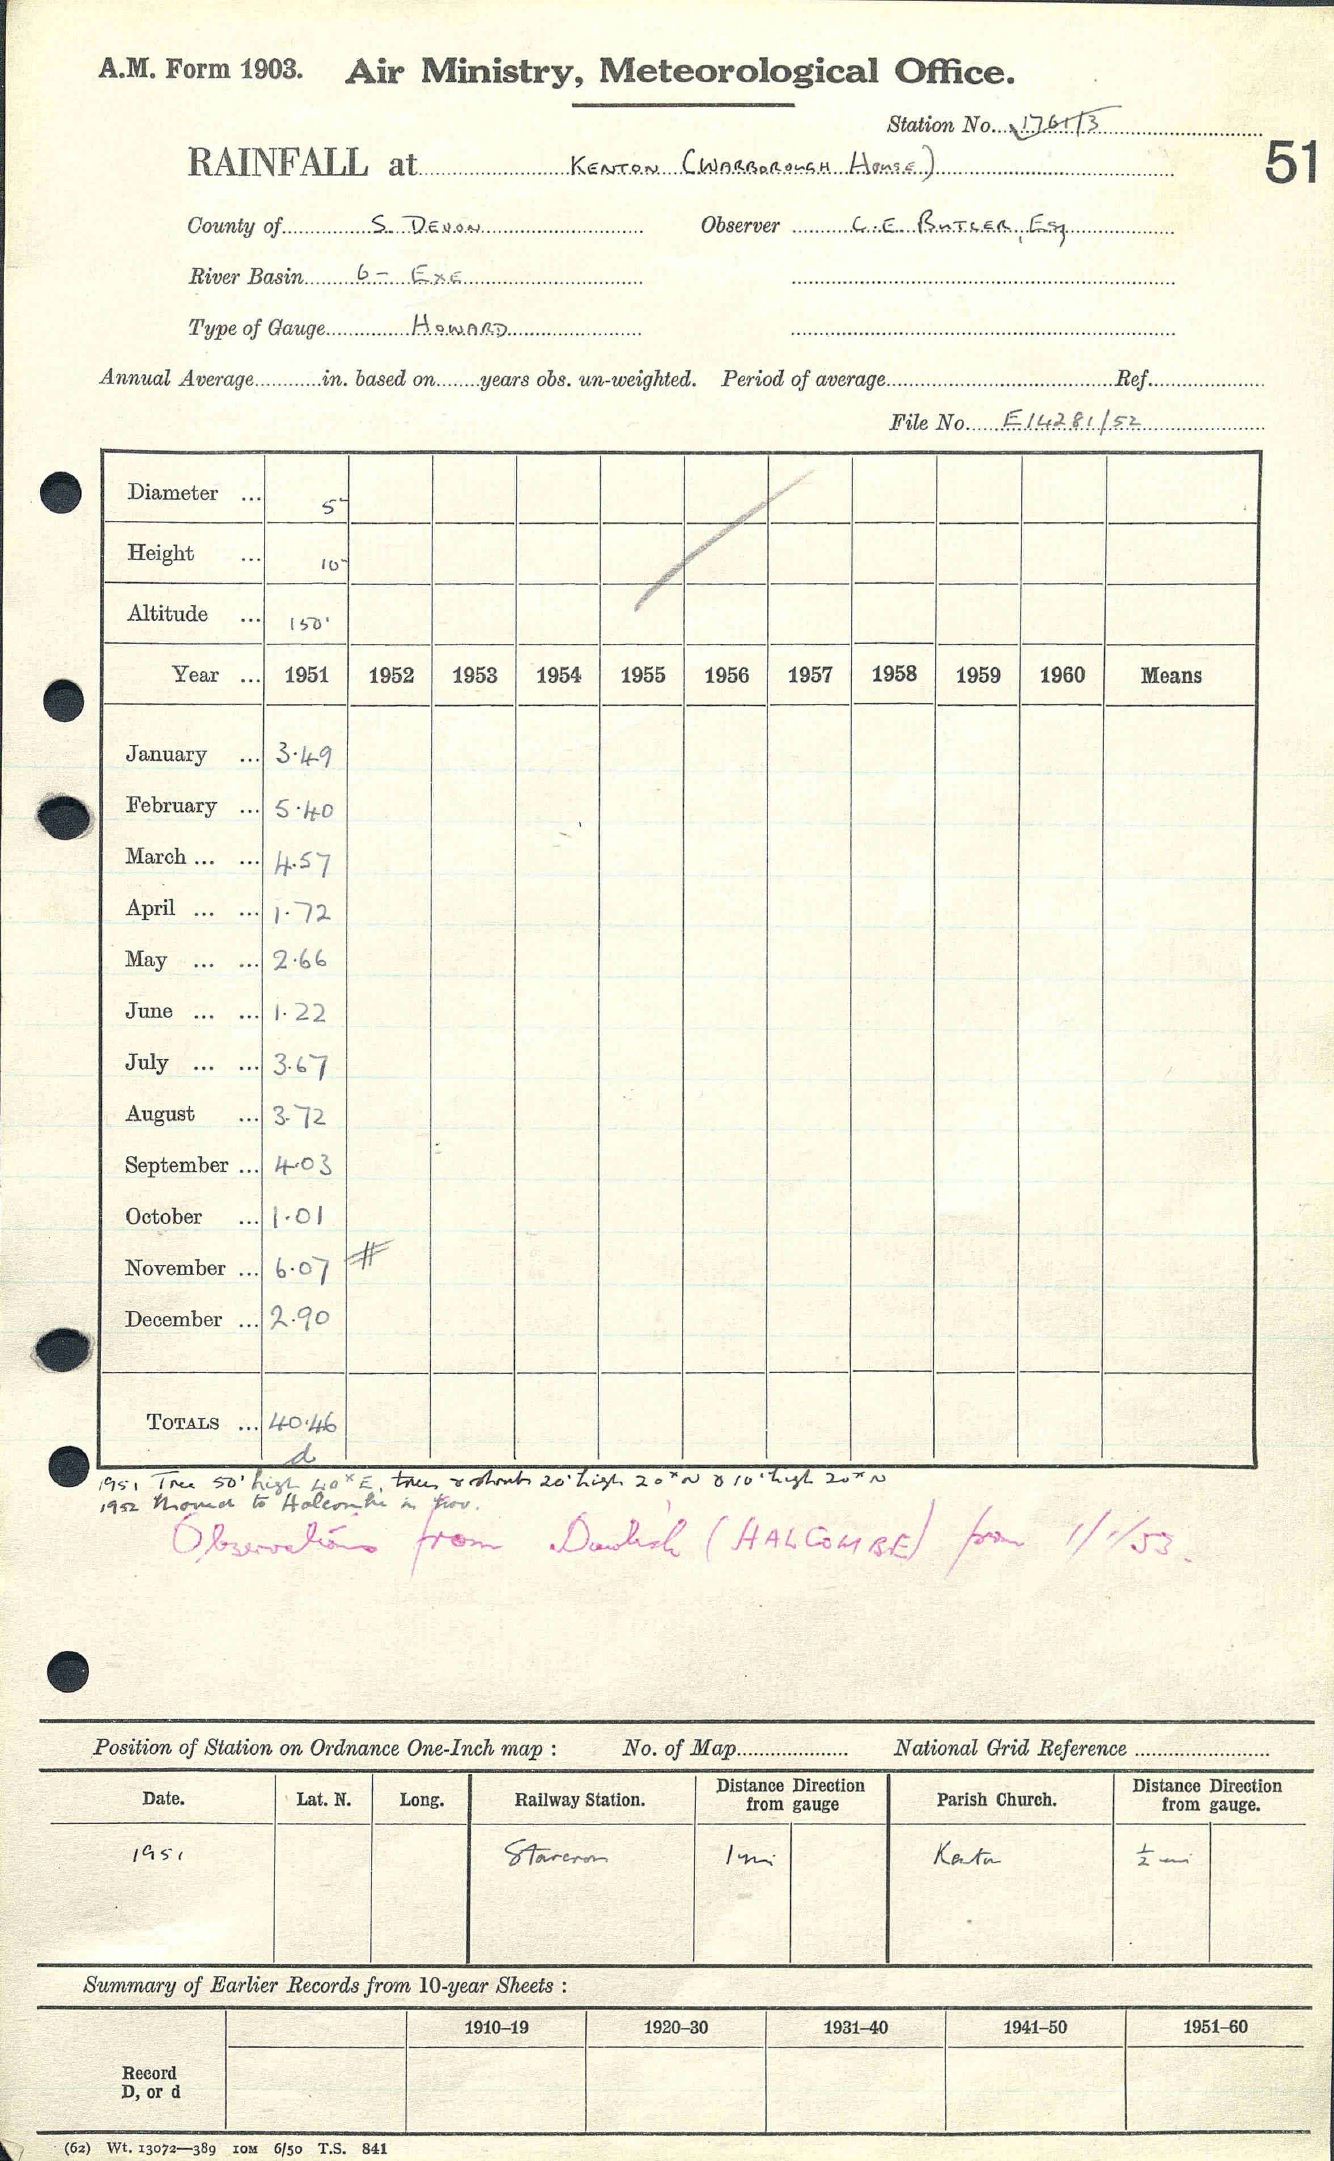 A.M. Form 1903. Air Ministry, Meteorological Office.
Station No. 1761/3
51
RAINFALL at KENTON (WARBOROUGH HOUSE)
County of S. DEVON Observer C. E. BUTLER, Esq
River Basin 6 - EXE
Type of Gauge HOWARD
Annual Average in. based on years obs. un-weighted. Period of average Ref.
File No. E14281/52
Diameter ... 5"
Height ... 10"
Altitude ... 150'
Year ... 1951 1952 1953 1954 1955 1956 1957 1958 1959 1960 Means
January ... 3.49
February ... 5.40
March ... ... 4.57
April ... ... 1.72
May ... ... 2.66
June ... ... 1.22
July ... ... 3.67
August ... 3.72
September ... 4.03
October ... 1.01
November ... 6.07 #
December ... 2.90
TOTALS ... 40.46
d
1951 Tree 50' high 40ˣ E, trees & shrubs 20' high 20ˣ N & 10' high 20ˣ N
1952 Moved to Halcombe in Nov.
Observations from Dawlish (HALCOMBE) from 1/1/53.
Position of Station on Ordnance One-Inch map : No. of Map National Grid Reference
Date. Lat. N. Long. Railway Station. Distance Direction from gauge Parish Church. Distance Direction from gauge.
1951 Starcross 1 mi Kenton ½ mi
Summary of Earlier Records from 10-year Sheets :
1910–19 1920–30 1931–40 1941–50 1951–60
Record
D, or d
(62) Wt. 13072—389 10M 6/50 T.S. 841